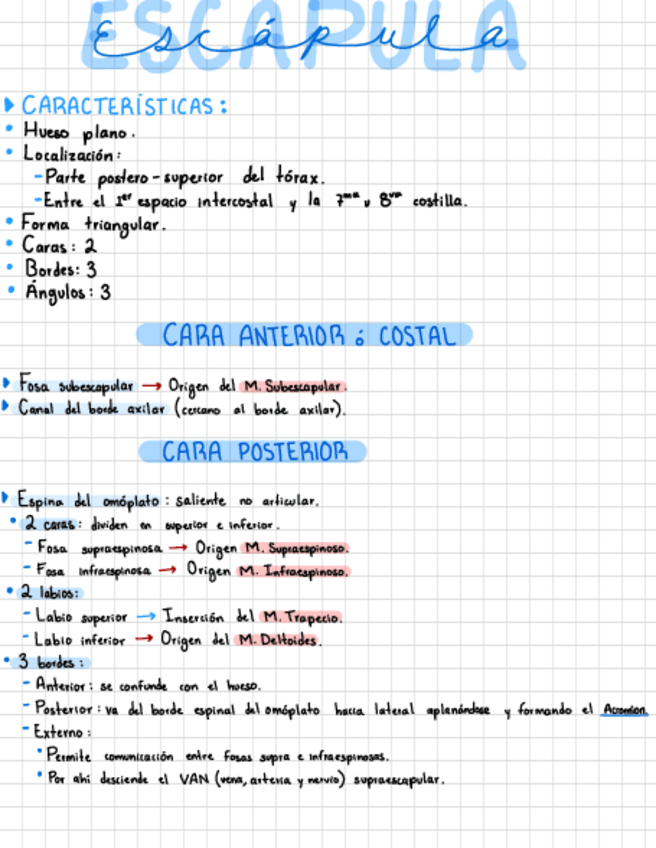 ESCÁPULA
Escápula
CARACTERÍSTICAS:
• Hueso plano.
• Localización:
-Parte postero-superior del tórax.
-Entre el 1er espacio intercostal y la 7ma u 8va costilla.
• Forma triangular.
• Caras: 2
• Bordes: 3
• Ángulos: 3
CARA ANTERIOR ó COSTAL
Fosa subescapular → Origen del M. Subescapular.
Canal del borde axilar (cercano al borde axilar).
CARA POSTERIOR
Espina del omóplato: saliente no articular.
• 2 caras: dividen en superior e inferior.
- Fosa supraespinosa → Origen M. Supraespinoso.
- Fosa infraespinosa → Origen M. Infraespinoso.
• 2 labios:
- Labio superior → Inserción del M. Trapecio.
- Labio inferior → Origen del M. Deltoides.
• 3 bordes:
- Anterior: se confunde con el hueso.
- Posterior: va del borde espinal del omóplato hacia lateral aplanándose y formando el Acromion.
- Externo:
• Permite comunicación entre fosas supra e infraespinosas.
• Por ahí desciende el VAN (vena, arteria y nervio) supraescapular.